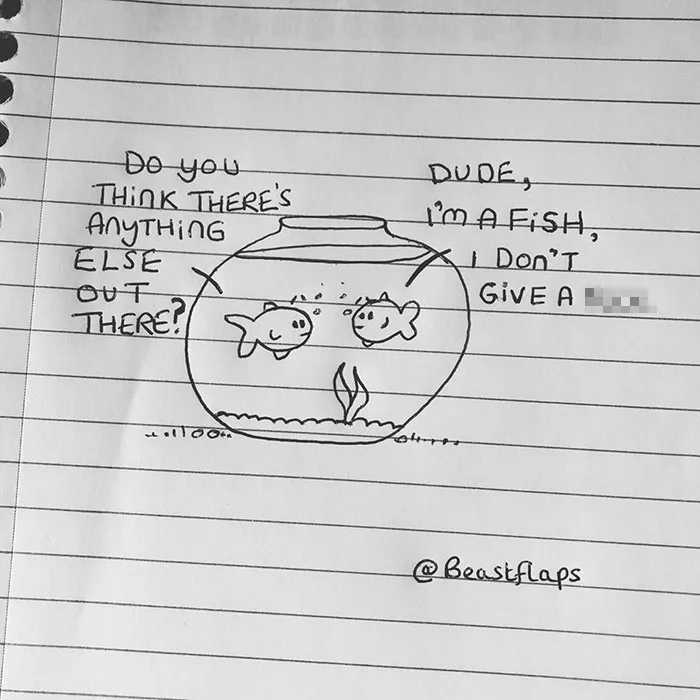 DO YOU
THINK THERE'S
ANYTHING
ELSE
OUT
THERE?
DUDE,
I'M A FISH,
I DON'T
GIVE A
@Beastflaps